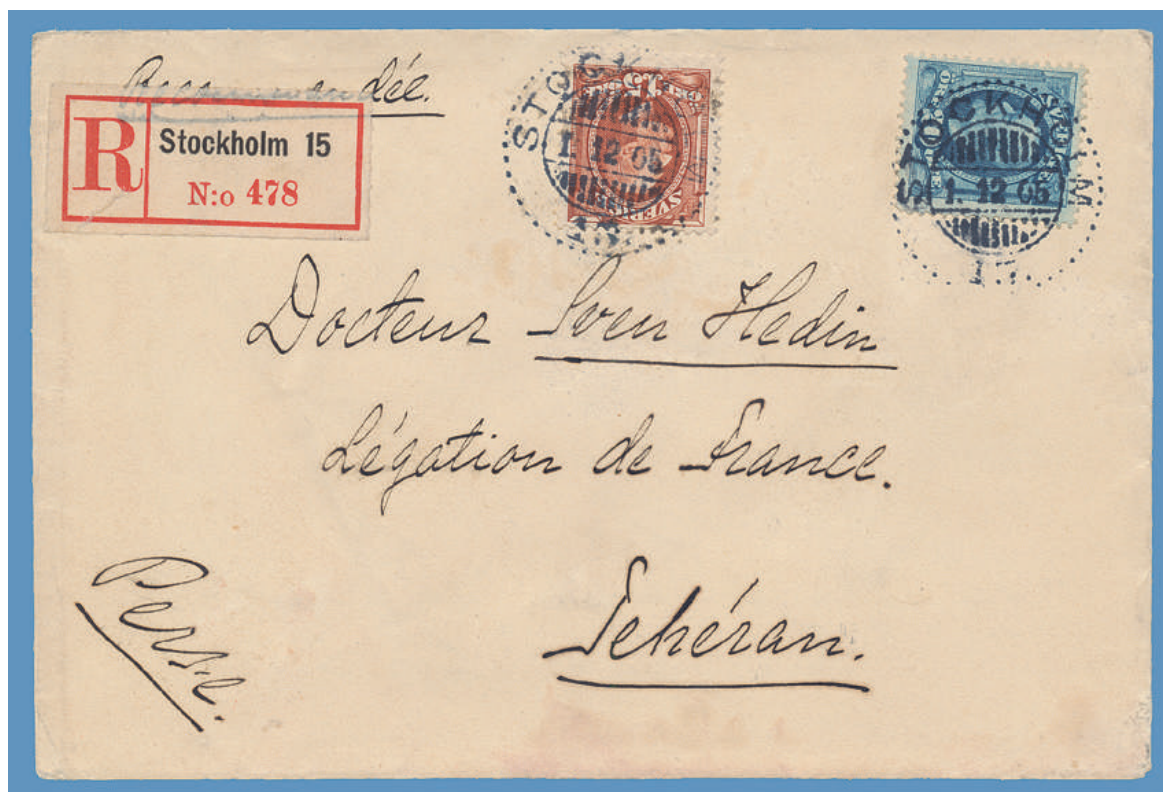 Recommandée.
R
Stockholm 15
N:o 478
STOCKHOLM
1. 12 05
15
STOCKHOLM
1. 12 05
15
SVERIGE
Docteur Sven Hedin
Légation de France.
Téhéran.
Perse.